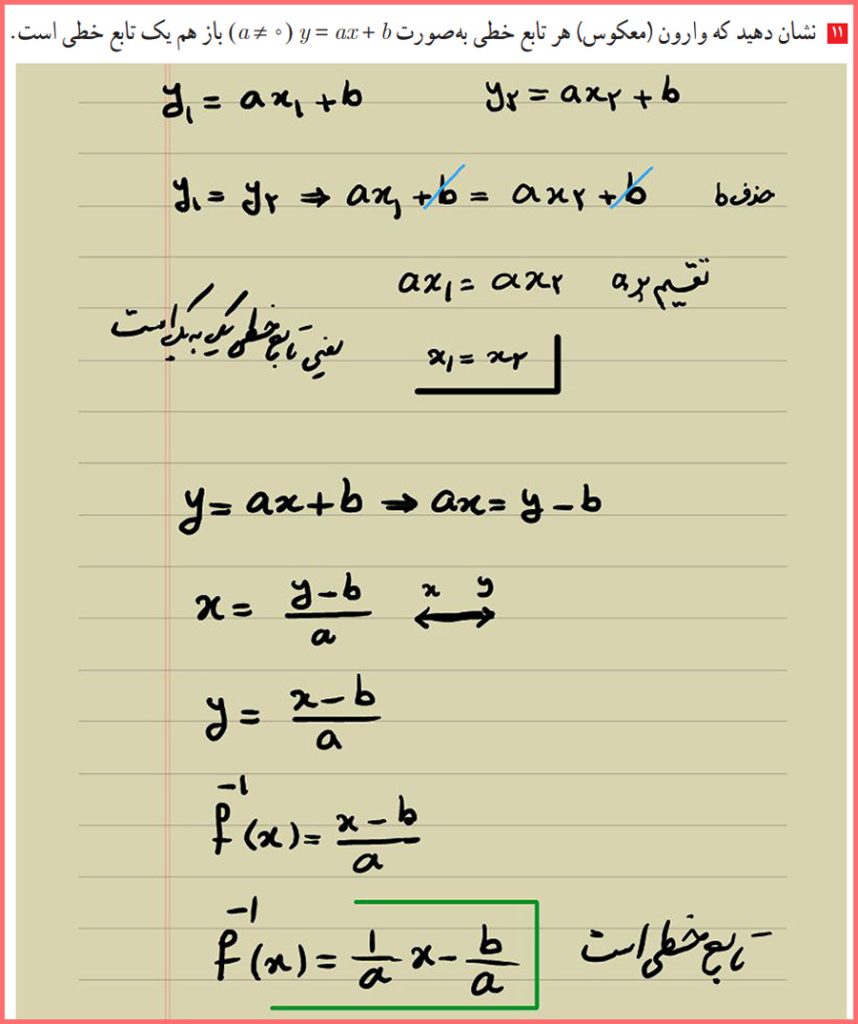 ۱۱ نشان دهید که وارون (معکوس) هر تابع خطی به‌صورت y = ax + b (a ≠ ۰) باز هم یک تابع خطی است.
y₁ = ax₁ + b y₂ = ax₂ + b
y₁ = y₂ ⇒ ax₁ + b = ax₂ + b حذف b
ax₁ = ax₂ تقسیم بر a
x₁ = x₂ یعنی تابع خطی یک به یک است
y = ax + b ⇒ ax = y - b
x = (y - b)/a x ↔ y
y = (x - b)/a
f⁻¹(x) = (x - b)/a
f⁻¹(x) = (1/a)x - b/a تابع خطی است